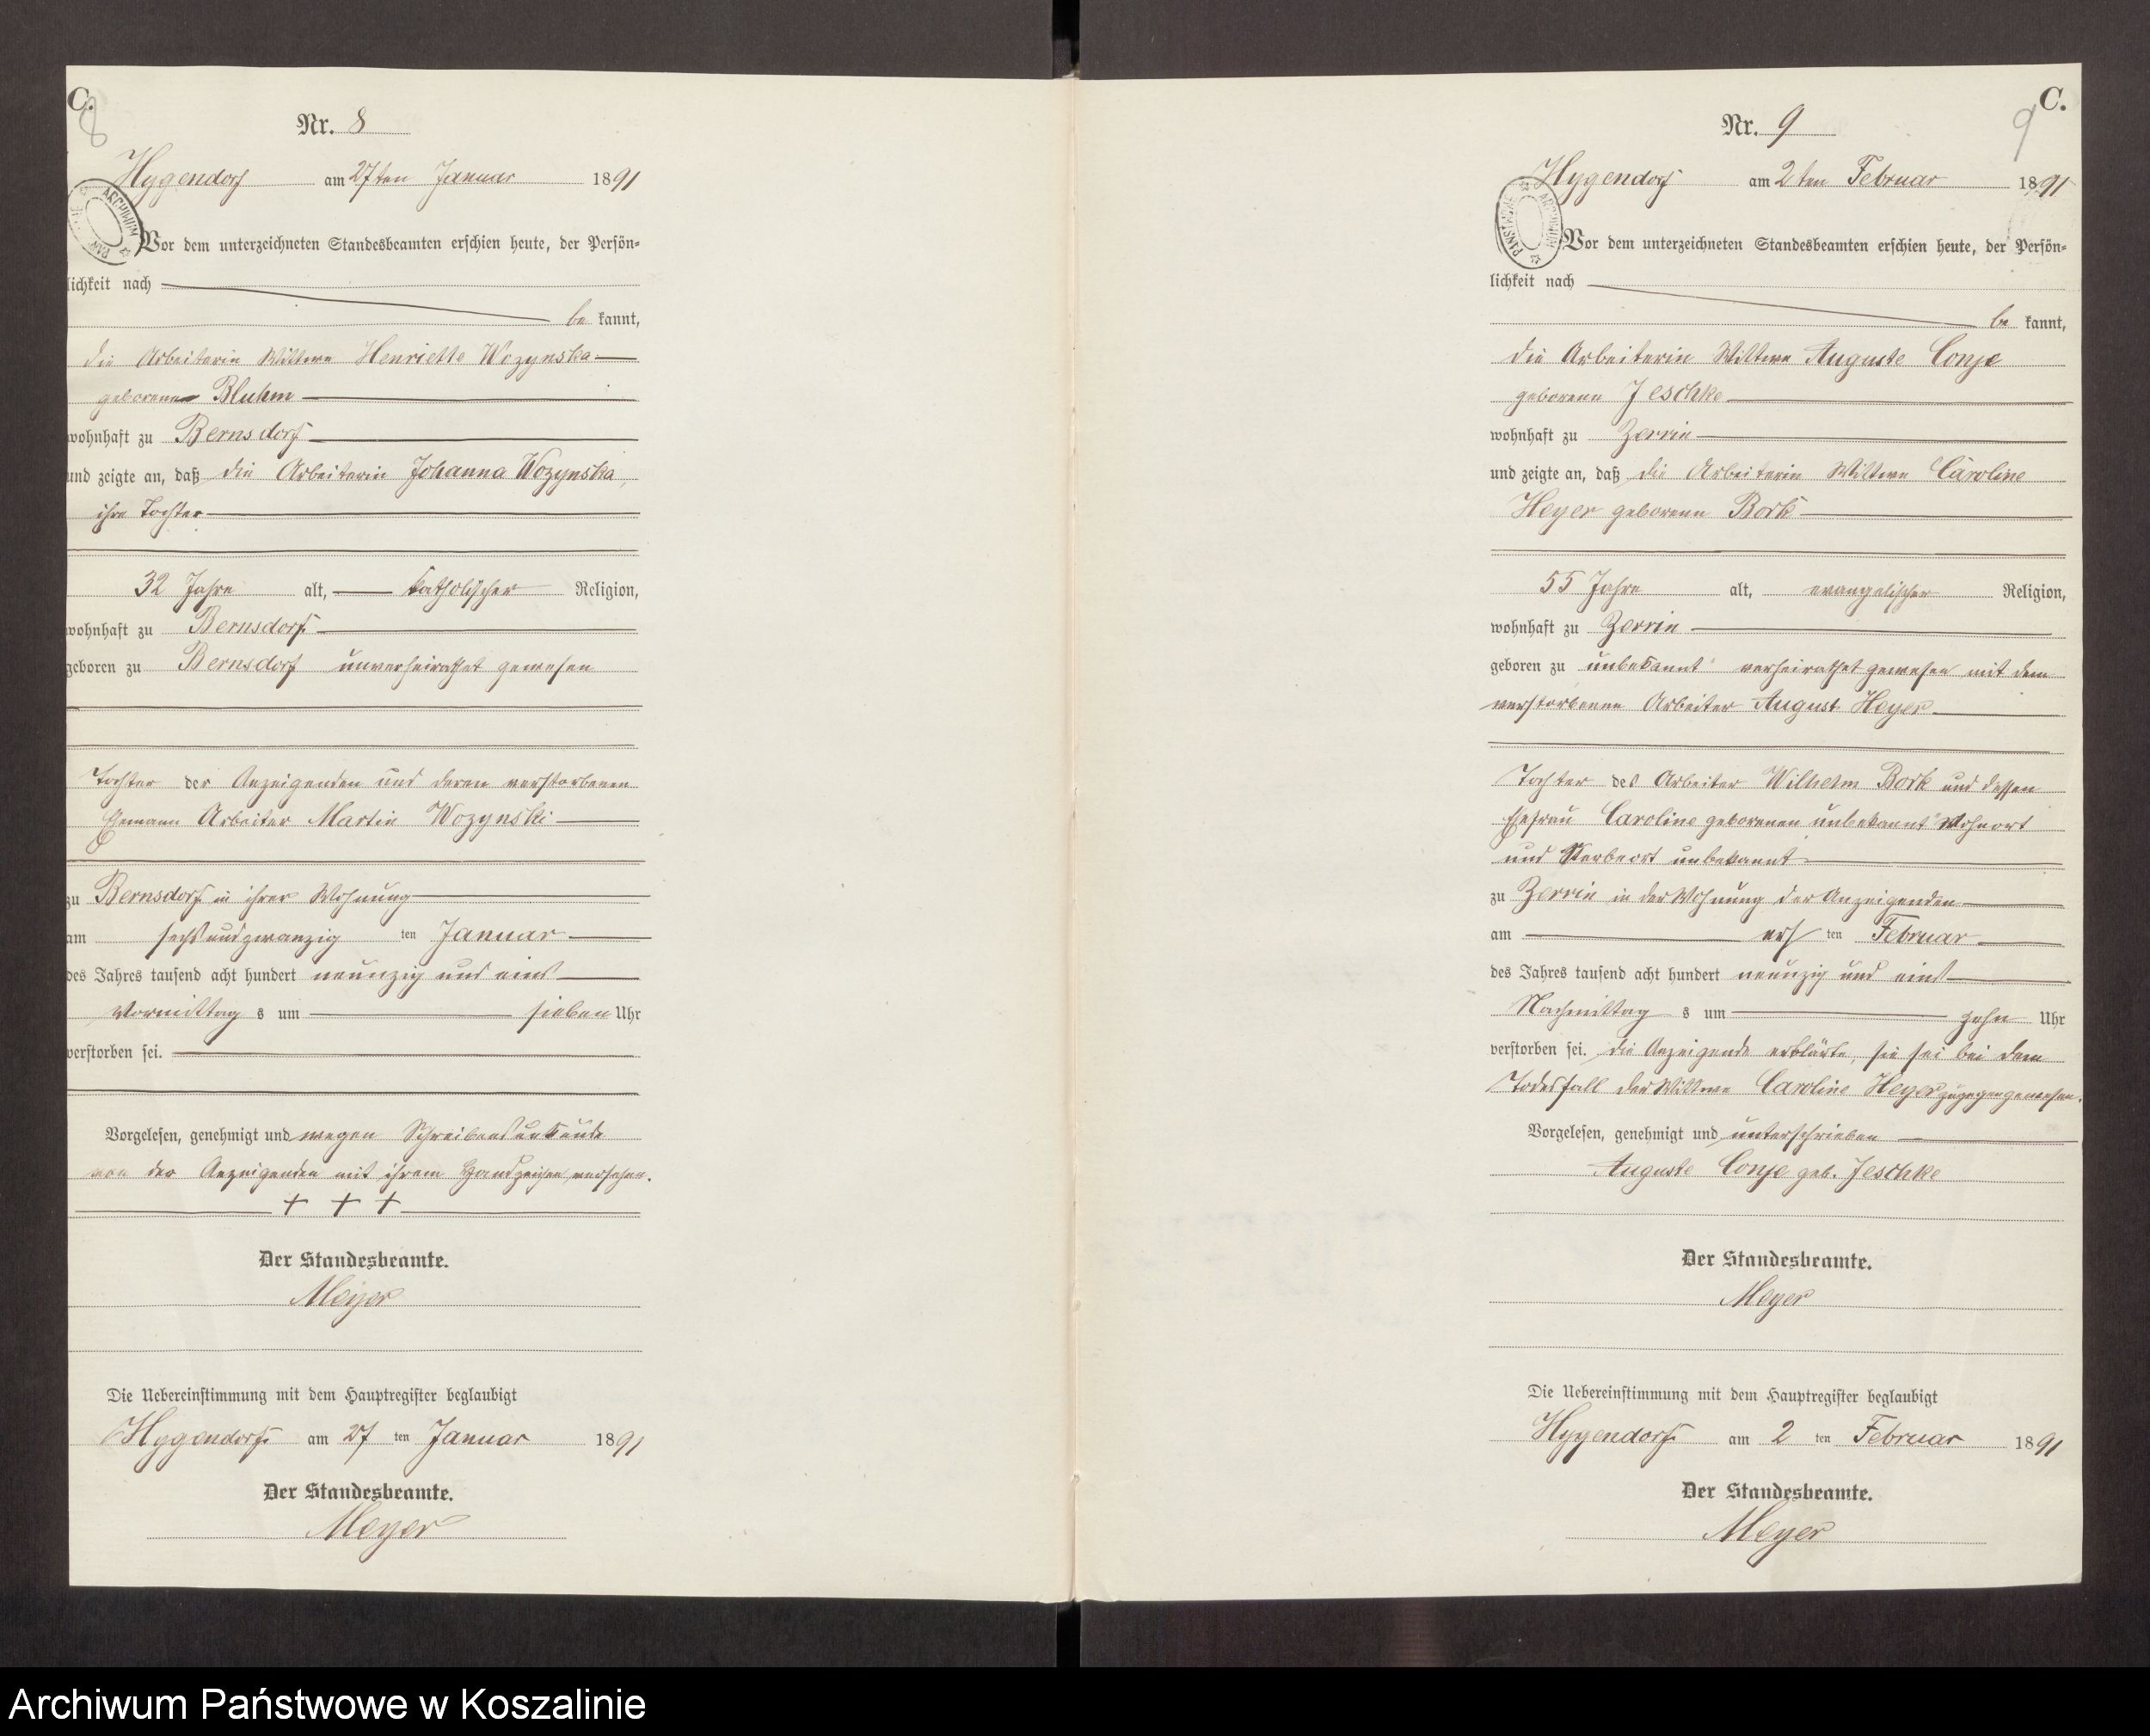 C.
8
Nr. 8
Hygendorf am 27ten Januar 1891
ARCHIWUM
Vor dem unterzeichneten Standesbeamten erschien heute, der Persön=
lichkeit nach
be kannt,
die Arbeiterin Wittwe Henriette Wozynska
geborene Bluhm
wohnhaft zu Bernsdorf
und zeigte an, daß die Arbeiterin Johanna Wozynska,
ihre Tochter
32 Jahre alt, katholischer Religion,
wohnhaft zu Bernsdorf
geboren zu Bernsdorf unverheirathet gewesen
Tochter der Anzeigenden und deren verstorbenen
Ehemann Arbeiter Martin Wozynski
zu Bernsdorf in ihrer Wohnung
am sechsundzwanzig ten Januar
des Jahres tausend acht hundert neunzig und eins
Vormittag s um sieben Uhr
verstorben sei.
Vorgelesen, genehmigt und wegen Schreibensunkunde
von der Anzeigenden mit ihrem Handzeichen versehen.
+ + +
Der Standesbeamte.
Meyer
Die Uebereinstimmung mit dem Hauptregister beglaubigt
Hygendorf am 27 ten Januar 1891
Der Standesbeamte.
Meyer
C.
9
Nr. 9
Hygendorf am 2ten Februar 1891
PANSTWOWE ARCHIWUM
Vor dem unterzeichneten Standesbeamten erschien heute, der Persön=
lichkeit nach
be kannt,
die Arbeiterin Wittwe Auguste Conje
geborene Jeschke
wohnhaft zu Zerrin
und zeigte an, daß die Arbeiterin Wittwe Caroline
Heyer geborene Bork
55 Jahre alt, evangelischer Religion,
wohnhaft zu Zerrin
geboren zu unbekannt verheirathet gewesen mit dem
verstorbenen Arbeiter August Heyer
Tochter des Arbeiter Wilhelm Bork und dessen
Ehefrau Caroline geborenen unbekannt Wohnort
und Sterbeort unbekannt
zu Zerrin in der Wohnung der Anzeigenden
am ers ten Februar
des Jahres tausend acht hundert neunzig und eins
Nachmittag s um zehn Uhr
verstorben sei. Die Anzeigende erklärte, sie sei bei dem
Todesfall der Wittwe Caroline Heyer zugegen gewesen.
Vorgelesen, genehmigt und unterschrieben
Auguste Conje geb. Jeschke
Der Standesbeamte.
Meyer
Die Uebereinstimmung mit dem Hauptregister beglaubigt
Hygendorf am 2 ten Februar 1891
Der Standesbeamte.
Meyer
Archiwum Państwowe w Koszalinie